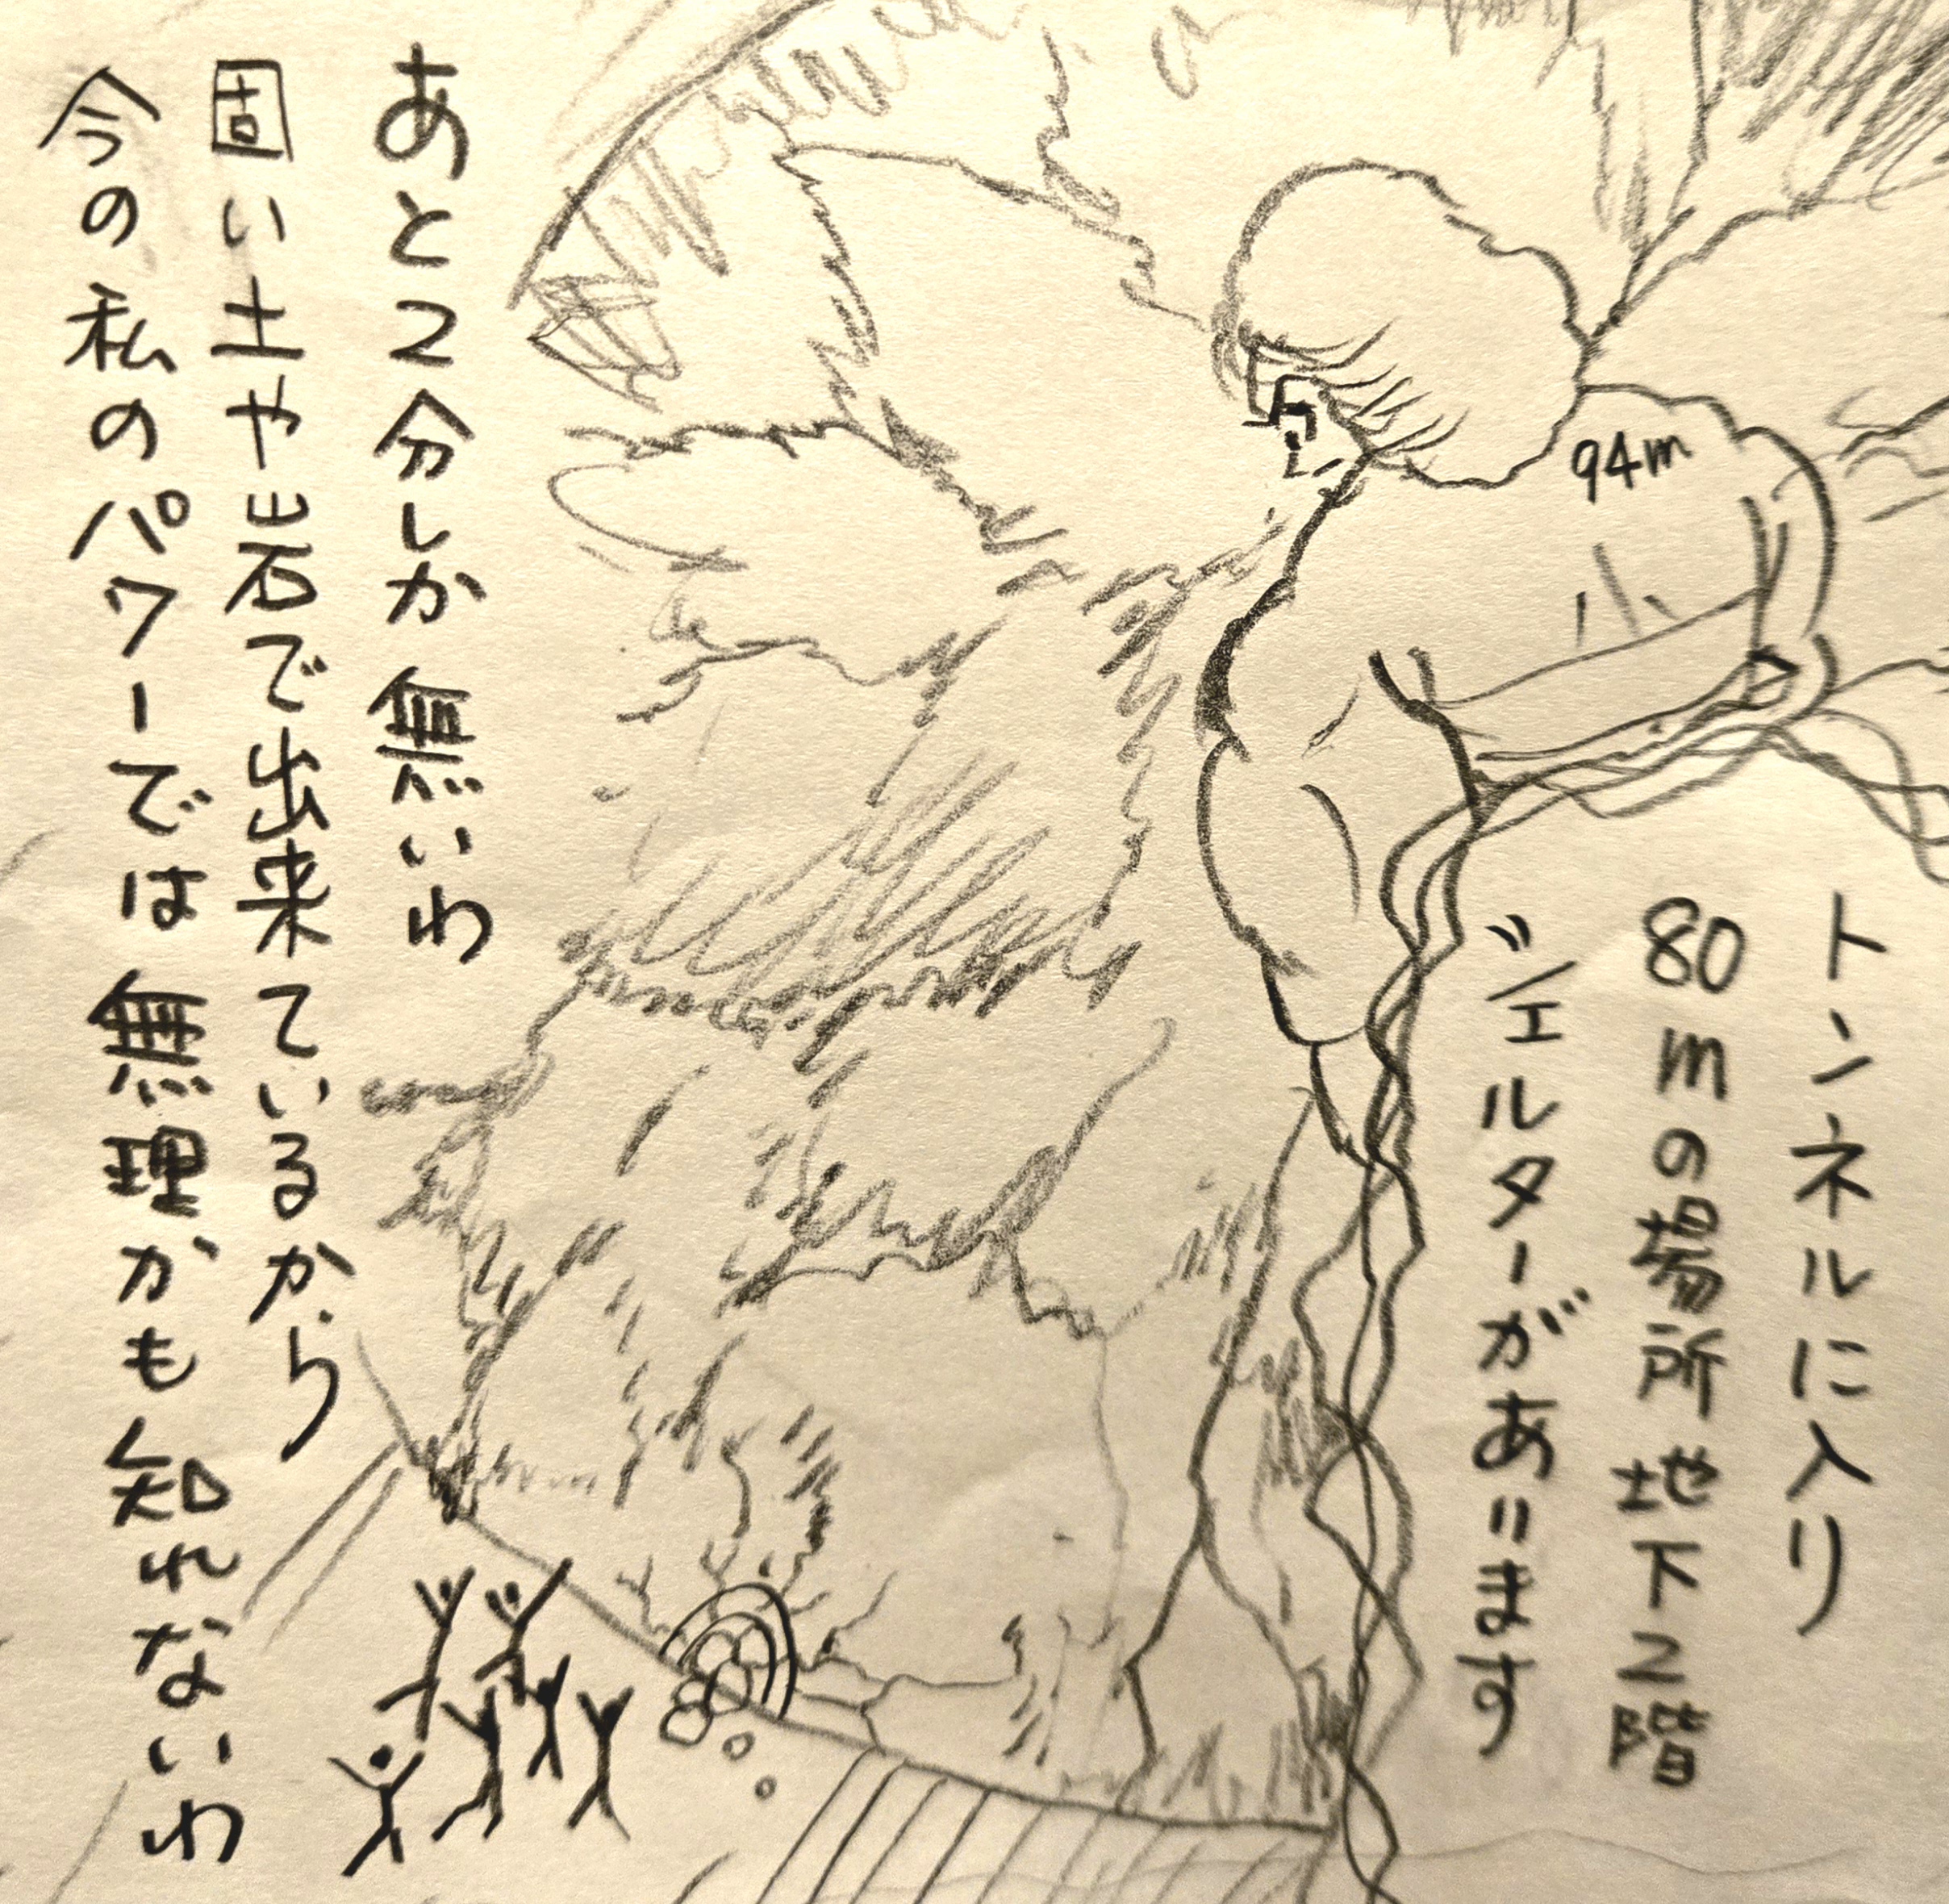 トンネルに入り
80mの場所地下2階
シェルターがあります
94m
あと2分しか無いわ
固い土や岩で出来ているから
今の私のパワーでは無理かも知れないわ